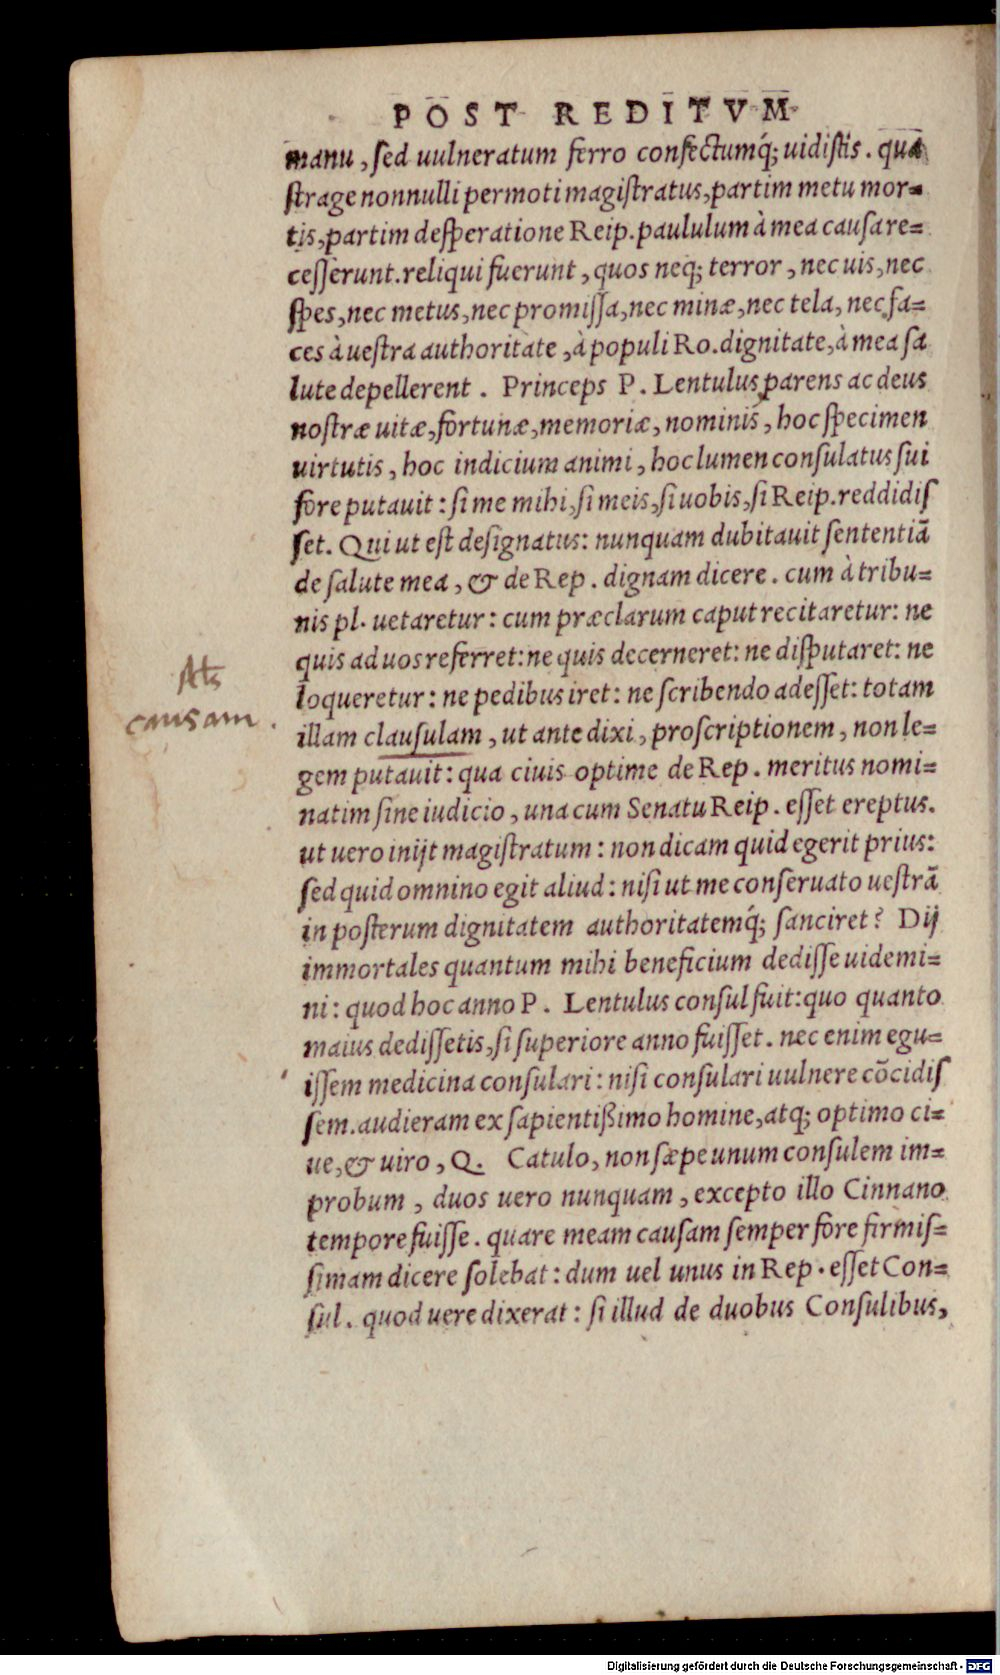 POST REDITVM
manu, ſed uulneratum ferro confectumq́; uidiſtis. qua
ſtrage nonnulli permoti magiſtratus, partim metu mor=
tis, partim deſperatione Reip. paululum à mea cauſa re=
ceſſerunt. reliqui fuerunt, quos neq; terror, nec uis, nec
ſpes, nec metus, nec promiſſa, nec minæ, nec tela, nec fa=
ces à ueſtra authoritate, à populi Ro. dignitate, à mea ſa
lute depellerent. Princeps P. Lentulus, parens ac deus
noſtræ uitæ, fortunæ, memoriæ, nominis, hoc ſpecimen
uirtutis, hoc indicium animi, hoc lumen conſulatus ſui
fore putauit: ſi me mihi, ſi meis, ſi uobis, ſi Reip. reddidiſ
ſet. Qui ut eſt deſignatus: nunquam dubitauit ſententiã
de ſalute mea, & de Rep. dignam dicere. cum à tribu=
nis pl. uetaretur: cum præclarum caput recitaretur: ne
quis ad uos referret: ne quis decerneret: ne diſputaret: ne
loqueretur: ne pedibus iret: ne ſcribendo adeſſet: totam
causam.
illam clauſulam, ut ante dixi, proſcriptionem, non le=
gem putauit: qua ciuis optime de Rep. meritus nomi=
natim ſine iudicio, una cum Senatu Reip. eſſet ereptus.
ut uero inijt magiſtratum: non dicam quid egerit prius:
ſed quid omnino egit aliud: niſi ut me conſeruato ueſtrã
in poſterum dignitatem authoritatemq́; ſanciret? Dij
immortales quantum mihi beneficium dediſſe uidemi=
ni: quod hoc anno P. Lentulus conſul fuit: quo quanto
maius dediſſetis, ſi ſuperiore anno fuiſſet. nec enim egu=
iſſem medicina conſulari: niſi conſulari uulnere cõcidiſ
ſem. audieram ex ſapientißimo homine, atq; optimo ci=
ue, & uiro, Q. Catulo, non ſæpe unum conſulem im=
probum, duos uero nunquam, excepto illo Cinnano
tempore fuiſſe. quare meam cauſam ſemper fore firmiſ=
ſimam dicere ſolebat: dum uel unus in Rep. eſſet Con=
ſul. quod uere dixerat: ſi illud de duobus Conſulibus,
Digitalisierung gefördert durch die Deutsche Forschungsgemeinschaft - DFG